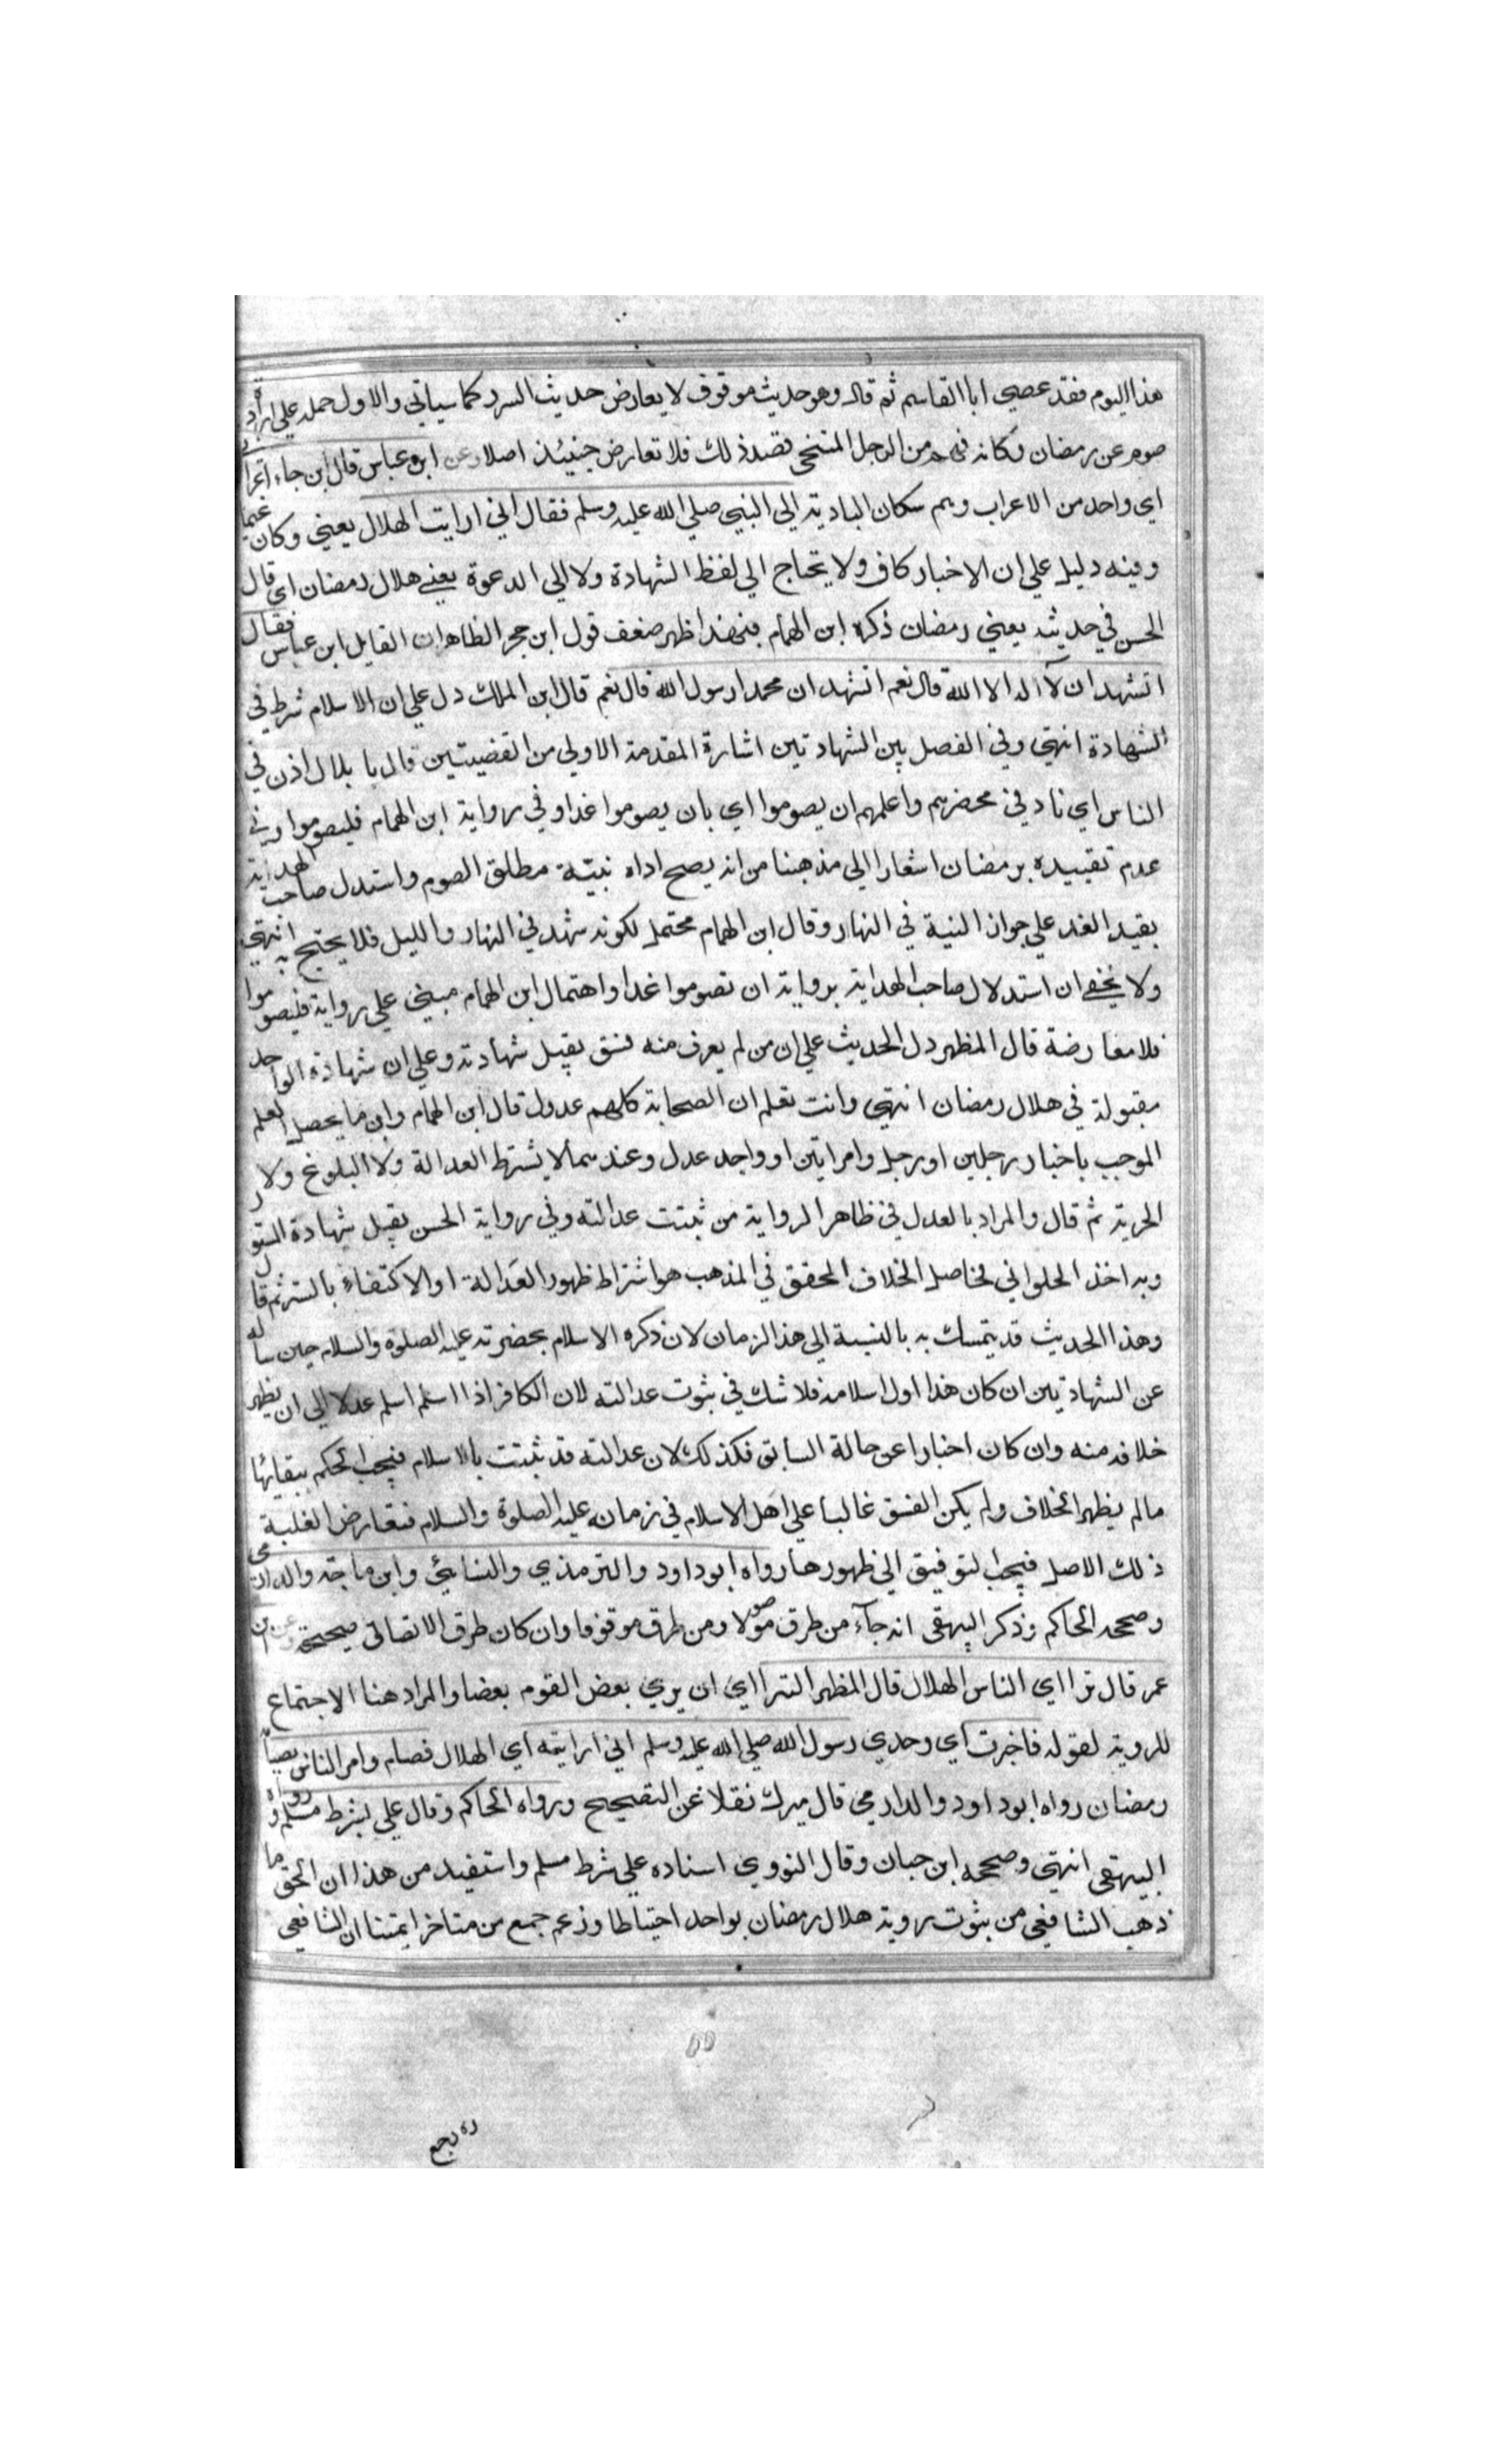 هذا اليوم فقد عصي ابا القاسم ثم قال وهو حديث موقوف لا يعارض حديث السرد كما سياتي والاول حمله علي ارادة
صومه عن رمضان وكانه فهم من الرجل المتنحي قصد ذلك فلا تعارض حينئذ اصلا وعن ابن عباس قال ابن جاء اعرابي
اي واحد من الاعراب وهم سكان البادية الي النبي صلي الله عليه وسلم فقال اني ارايت الهلال يعني وكان غيما
وفيه دليل علي ان الاخبار كاف ولا يحتاج الي لفظ الشهادة ولا الي الدعوة يعني هلال رمضان اي قال
الحسن في حديثه يعني رمضان ذكره ابن الهمام فبهذا ظهر ضعف قول ابن حجر الظاهر ان القايل ابن عباس فقال
اتشهد ان لآ اله الا الله قال نعم اتشهد ان محمدا رسول الله قال نعم قال ابن الملك دل علي ان الاسلام شرط في
الشهادة انتهي وفي الفصل بين الشهادتين اشارة المقدمة الاولي من القضيتين قال يا بلال اذن في
الناس اي ناد في محضرهم واعلمهم ان يصوموا اي بان يصوموا غدا وفي رواية ابن الهمام فليصوموا وفي
عدم تقييده برمضان اشعارا الي مذهبنا من انه يصح اداه بنيّة مطلق الصوم واستدل صاحب الهداية
بقيد الغد علي جواز النية في النهار وقال ابن الهمام محتمل لكونه شهد في النهار والليل فلا يحتج به انتهي
ولا يخفي ان استدلال صاحب الهداية برواية ان تصوموا غدا واحتمال ابن الهمام مبني علي رواية فليصوموا
فلا معارضة قال المظهر دل الحديث علي ان من لم يعرف منه فسق يقبل شهادته وعلي ان شهادة الواحد
مقبولة في هلال رمضان انتهي وانت تعلم ان الصحابة كلهم عدول قال ابن الهمام وابن ما يحصل العلم
الموجب باخبار رجلين او رجل وامراتين او واحد عدل وعندهما لا يشترط العدالة ولا البلوغ ولا
الحرية ثم قال والمراد بالعدل في ظاهر الرواية من ثبتت عدالته وفي رواية الحسن يقبل شهادة المستور
وبه اخذ الحلواني فحاصل الخلاف المحقق في المذهب هو اشتراط ظهور العدالة او الاكتفاء بالستر ثم قال
وهذا الحديث قد يتمسك به بالنسبة الي هذا الزمان لان ذكره الاسلام بحضرته عليه الصلوة والسلام حين ساله
عن الشهادتين ان كان هذا اول اسلامه فلا شك في ثبوت عدالته لان الكافر اذا اسلم اسلم عدلا الي ان يظهر
خلافه منه وان كان اخبارا عن حالة السابق فكذلك لان عدالته قد ثبتت بالاسلام فيجب الحكم ببقائها
مالم يظهر الخلاف ولم يكن الفسق غالبا علي اهل الاسلام في زمانه عليه الصلوة والسلام فتعارض الغلبة
ذلك الاصل فيجب التوفيق الي ظهورها رواه ابو داود والترمذي والنسائي وابن ماجة والدارمي
وصححه الحاكم وذكر البيهقي انه جآء من طرق موصولا ومن طرق موقوفا وان كان طرق الاتصال صحيحة وعن ابن
عمر قال ترا اي الناس الهلال قال المظهر الترا اي ان يري بعض القوم بعضا والمراد هنا الاجتماع
للروية لقوله فاخبرت اي وحدي رسول الله صلي الله عليه وسلم اني ارايته اي الهلال فصام وامر الناس بصيام
رمضان رواه ابو داود والدارمي قال ميرك نقلا عن التصحيح ورواه الحاكم وقال علي بشرط مسلم ورواه
البيهقي انتهي وصححه ابن حبان وقال النووي اسناده علي شرط مسلم واستفيد من هذا ان الحق ما
ذهب الشافعي من ثبوت روية هلال رمضان بواحد احتياطا وزعم جمع من متاخر ايمتنا ان الشافعي